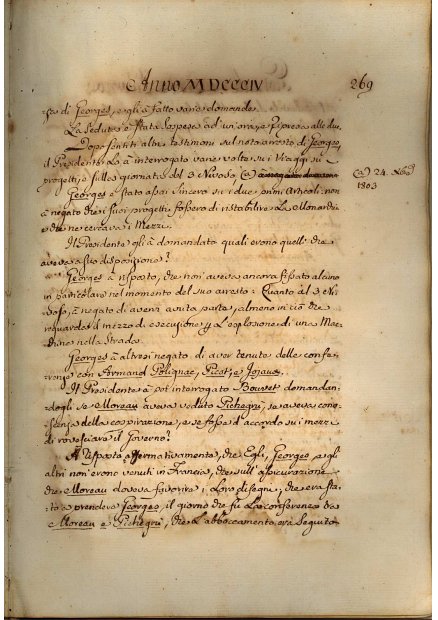 Anno MDCCCIV
269
sa di Georges, egli à fatto varie domande.
La Seduta è stata sospesa ad un'ora, e ripresa alle due.
Dopo sentiti altri testimonj sul noto arresto di Georges,
il Presidente Lo à interrogato varie volte su i Viaggi, su i
progetti, e sulla giornata del 3 Nivoso, (a)
(a) 24. Xbre
1803
Georges è stato assai sincero su i due primi Articoli; non
à negato che i suoi progetti fossero di ristabilire La Monarchia
e che ne cercava i Mezzi.
Il Presidente gli à domandato quali erano quelli che
aveva a sua disposizione?
Georges à risposto, che non aveva ancora fissato alcuno
in particolare nel momento del suo arresto: Quanto al 3 Ni-
voso, à negato di avervi avuta parte, almeno in ciò che
riguarda il mezzo di esecuzione p L'esplosione di una Mac-
china nella Strada.
Georges à altresì negato di aver tenute delle confe-
renze con Armand Polignac, Picot, e Jojaux.
Il Presidente à poi interrogato Bouvet domandan-
dogli se Moreau aveva veduto Pichegrù, se aveva cono-
scenza della cospirazione, e se fosse d'accordo su i mezzi
di rovesciare il Governo?
À risposto affermativamente, che Egli, Georges, e gli
altri non erano venuti in Francia, che sull'assicurazione
che Moreau doveva favorire i Loro disegni, che era sta-
to a prendere Georges, il giorno che fu La conferenza tra
e Moreau e Pichegrù, che L'abboccamento era seguito